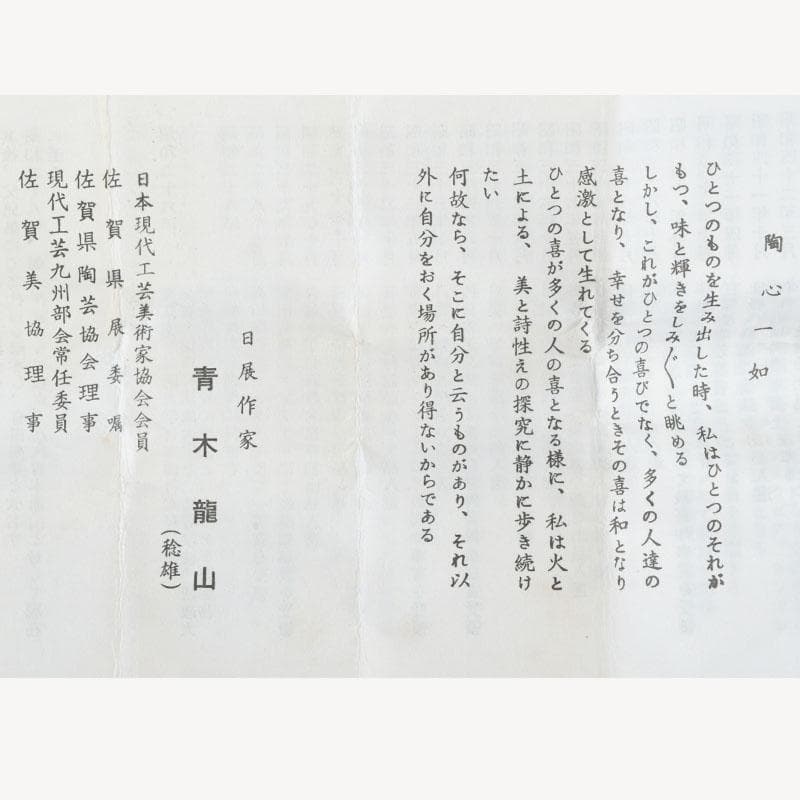 陶心一如
ひとつのものを生み出した時、私はひとつのそれが
もつ、味と輝きをしみ〴〵と眺める
しかし、これがひとつの喜びでなく、多くの人達の
喜となり、幸せを分ち合うときその喜は和となり
感激として生れてくる
ひとつの喜が多くの人の喜となる様に、私は火と
土による、美と詩性えの探究に静かに歩き続け
たい
何故なら、そこに自分と云うものがあり、それ以
外に自分をおく場所があり得ないからである
日展作家
青木龍山
(稔雄)
日本現代工芸美術家協会会員
佐賀県展委嘱
佐賀県陶芸協会理事
現代工芸九州部会常任委員
佐賀美協理事